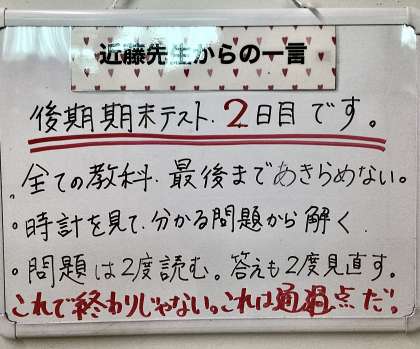 近藤先生からの一言
後期期末テスト.2日目です。
全ての教科.最後まであきらめない。
・時計を見て.分かる問題から解く.
・問題は2度読む。答えも2度見直す。
これで終わりじゃない。これは通過点だ。